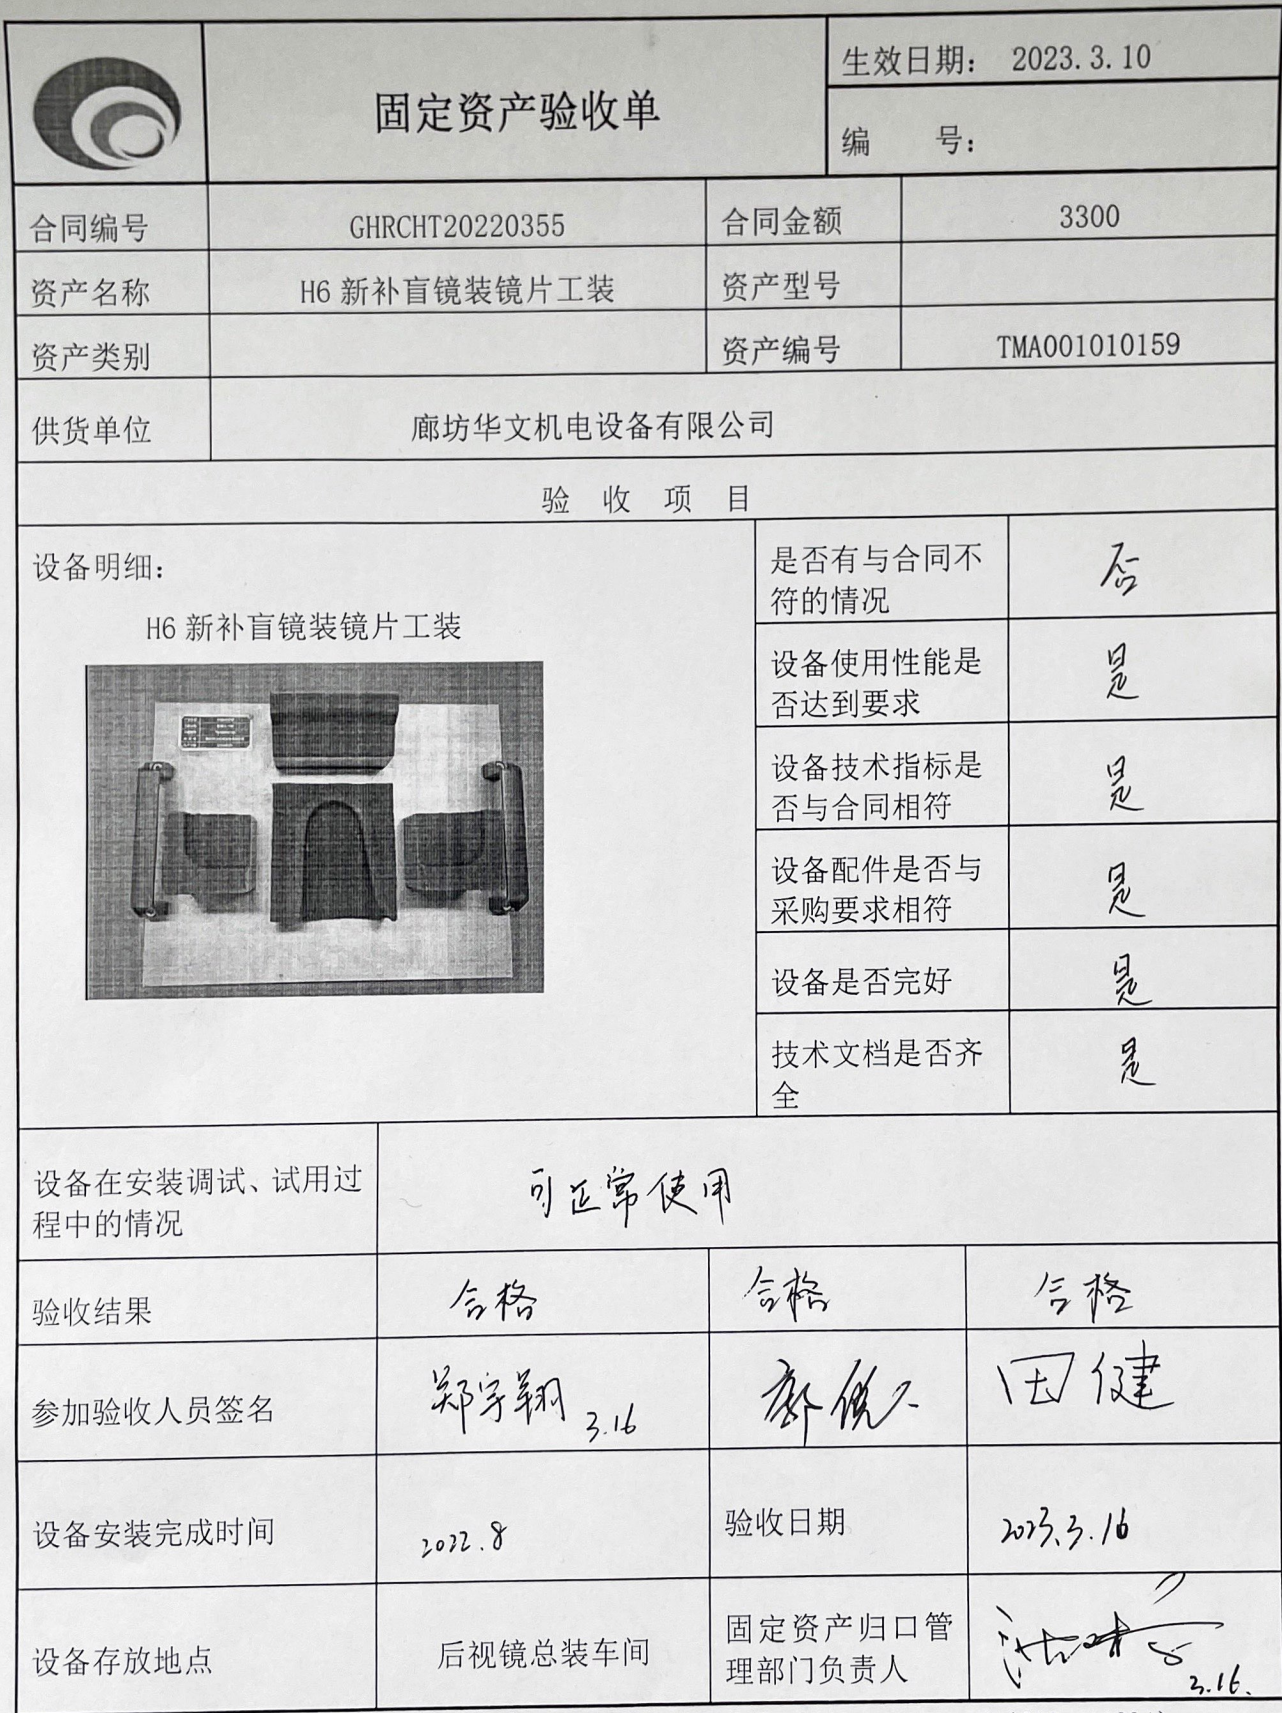 固定资产验收单
生效日期： 2023.3.10
编 号：
合同编号 GHRCHT20220355 合同金额 3300
资产名称 H6 新补盲镜装镜片工装 资产型号
资产类别 资产编号 TMA001010159
供货单位 廊坊华文机电设备有限公司
验 收 项 目
设备明细：
H6 新补盲镜装镜片工装
是否有与合同不
符的情况
否
设备使用性能是
否达到要求
是
设备技术指标是
否与合同相符
是
设备配件是否与
采购要求相符
是
设备是否完好 是
技术文档是否齐
全
是
设备在安装调试、试用过
程中的情况
可正常使用
验收结果 合格 合格 合格
参加验收人员签名 郑宇翔 3.16 田健
设备安装完成时间 2022.8 验收日期 2023.3.16
设备存放地点 后视镜总装车间
固定资产归口管
理部门负责人
3.16.